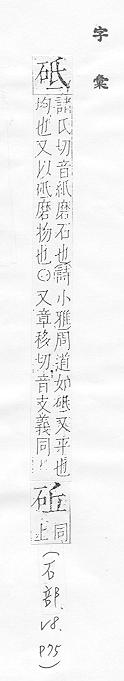 字彙
砥
諸氏切音紙磨石也詩小雅周道如砥又平也
均也又以砥磨物也○又章移切音支義同
砋
同
上
(石部. V8. P75)